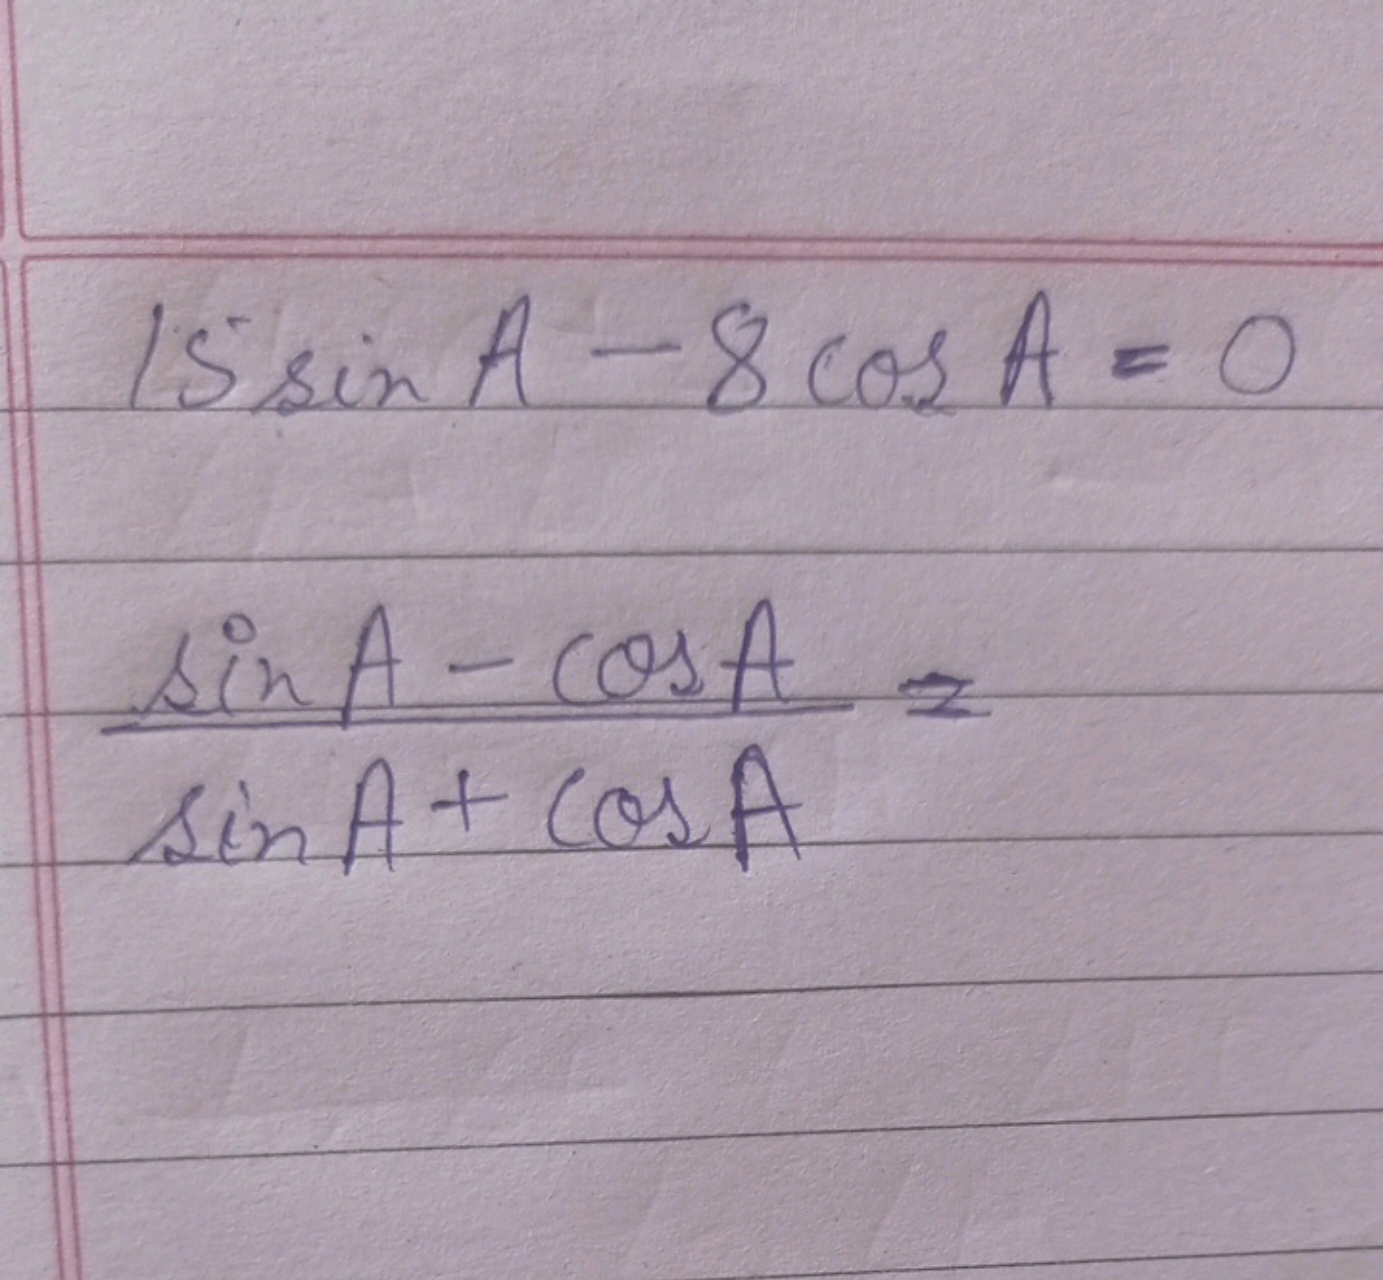 15 sin A - 8 cos A = 0
sin A - cos A =
sin A + cos A